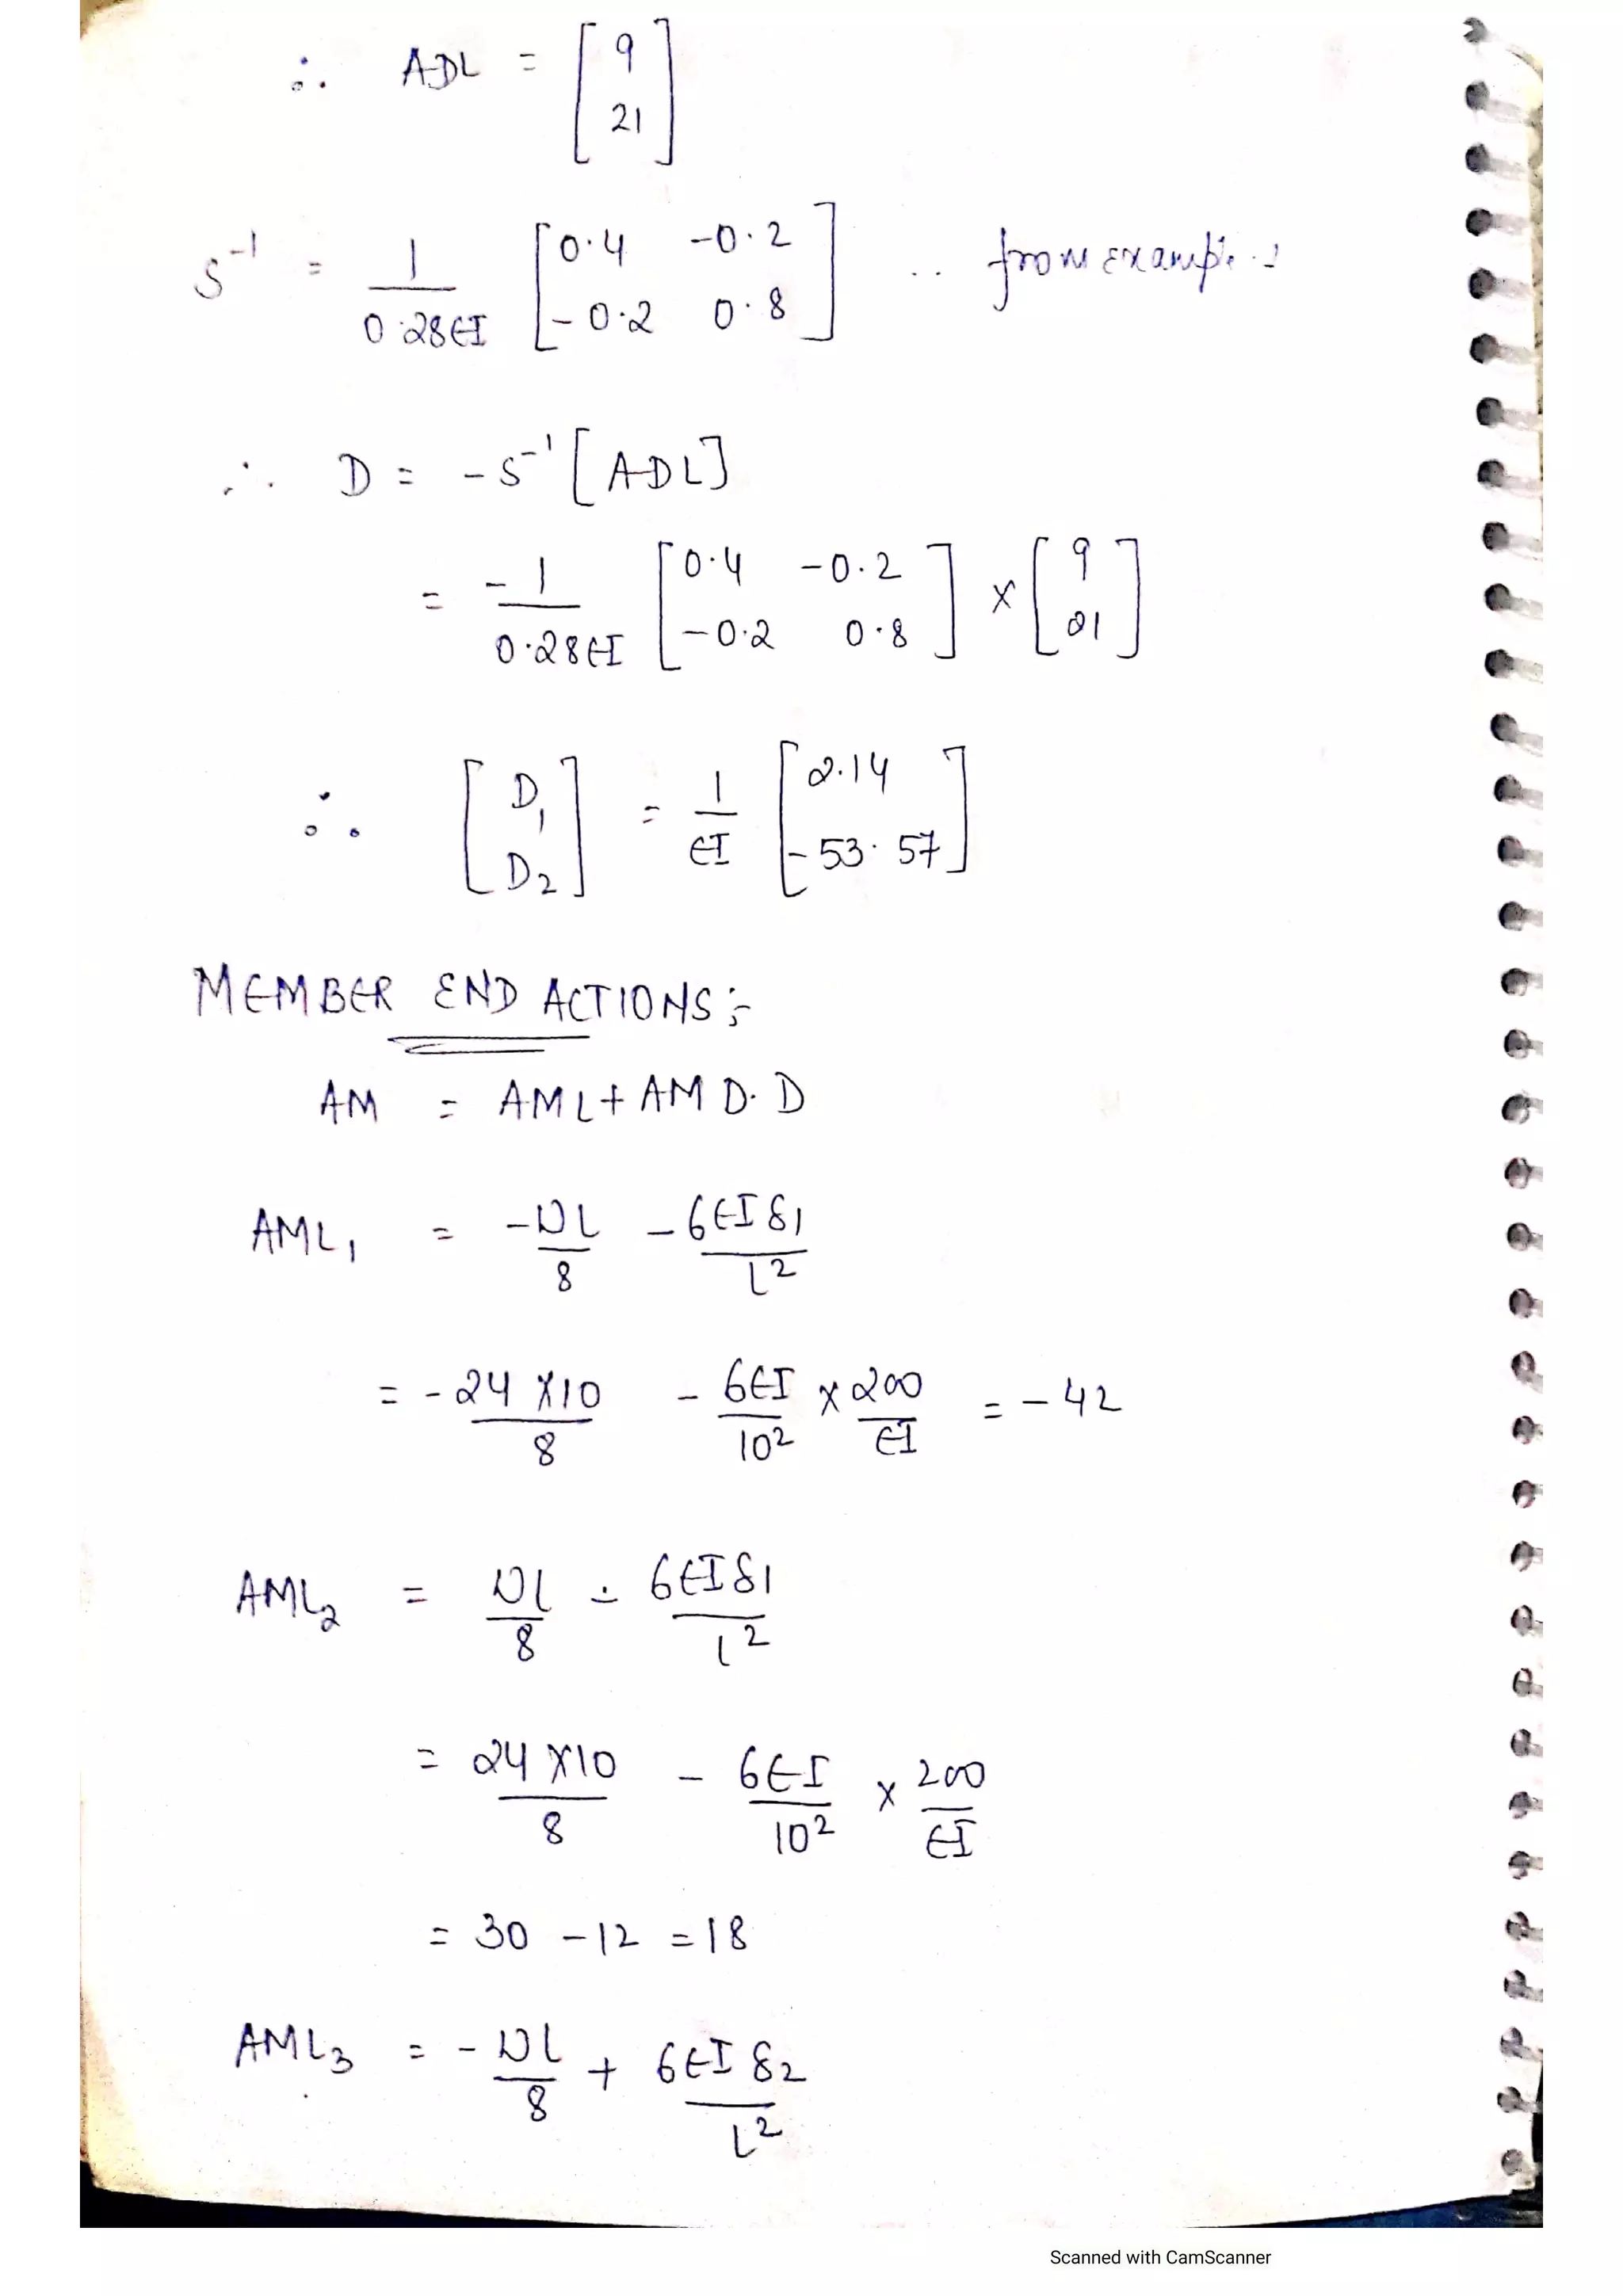 ∴ ADL = [ 9
21 ]
S⁻¹ = 1/0.28EI [ 0.4 -0.2
-0.2 0.8 ] .. from
∴ D = -S⁻¹ [ADL]
= -1/0.28EI [ 0.4 -0.2
-0.2 0.8 ] × [ 9
21 ]
∴ [ D₁
D₂ ] = 1/EI [ 2.14
-53.57 ]
MEMBER END ACTIONS:-
AM = AML + AMD. D
AML₁ = -WL/8 - 6EIδ₁/L²
= -24×10/8 - 6EI/10² × 200/EI = -42
AML₂ = WL/8 - 6EIδ₁/L²
= 24×10/8 - 6EI/10² × 200/EI
= 30 - 12 = 18
AML₃ = -WL/8 + 6EIδ₂/L²
Scanned with CamScanner